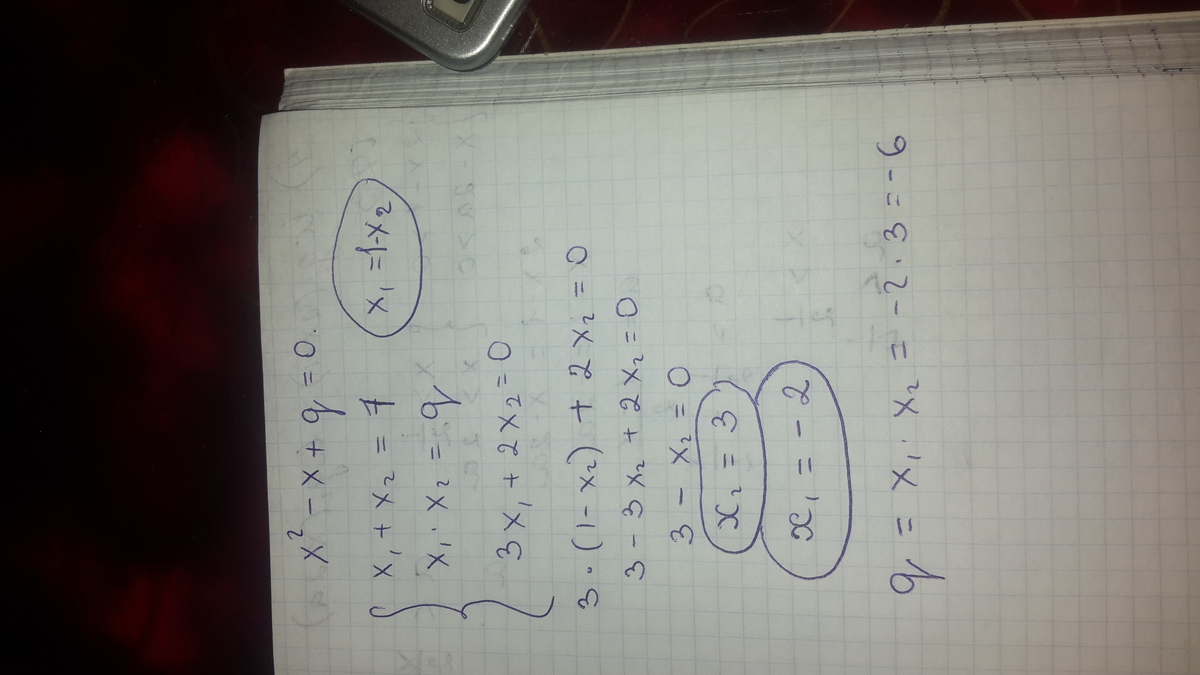 x² - x + q = 0.
x₁ + x₂ = 1 x₁ = 1-x₂
x₁ · x₂ = q
3x₁ + 2x₂ = 0
3 · (1 - x₂) + 2x₂ = 0
3 - 3x₂ + 2x₂ = 0
3 - x₂ = 0
x₂ = 3
x₁ = -2
q = x₁ · x₂ = -2 · 3 = -6